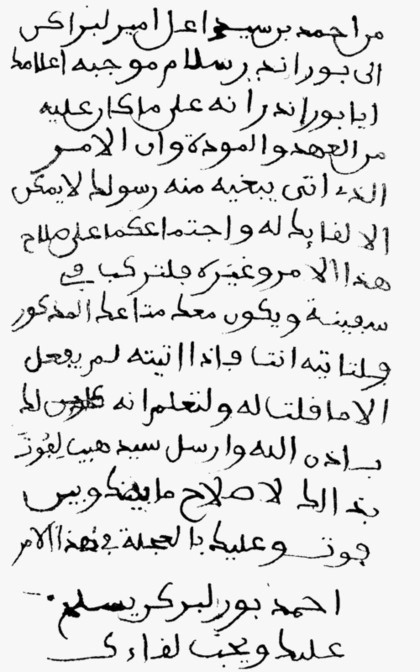 من احمد بن سيد اعل امير لبراكن
الى بوراندر سلام موجبه اعلامك
ايا بوراندر انه على ما كان عليه
من العهد والمودة وان الامر
الذي اتى يبغيه منه رسولك لا يمكن
الا لفاءك له واجتماعكما على صلاح
هذا الامر وغيره فلتركب في
سفينة ويكون معك متاعك المذكور
ولتاته انت فاذا اتيته لم يفعل
الا ما قلت له ولتعلم انه لك
باذن الله وارسل سيد
بذالك لاصلاح ما بينك وبين
وعليك بالعجلة في هذا الامر
احمد بور لبركن يسلم
عليك ويحب لفاءك